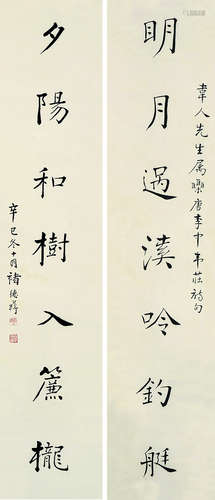 眀月過溪吟釣艇
韋人先生属聯唐李中韋莊詩句
夕陽和樹入簾櫳
辛巳冬十月褚德彝